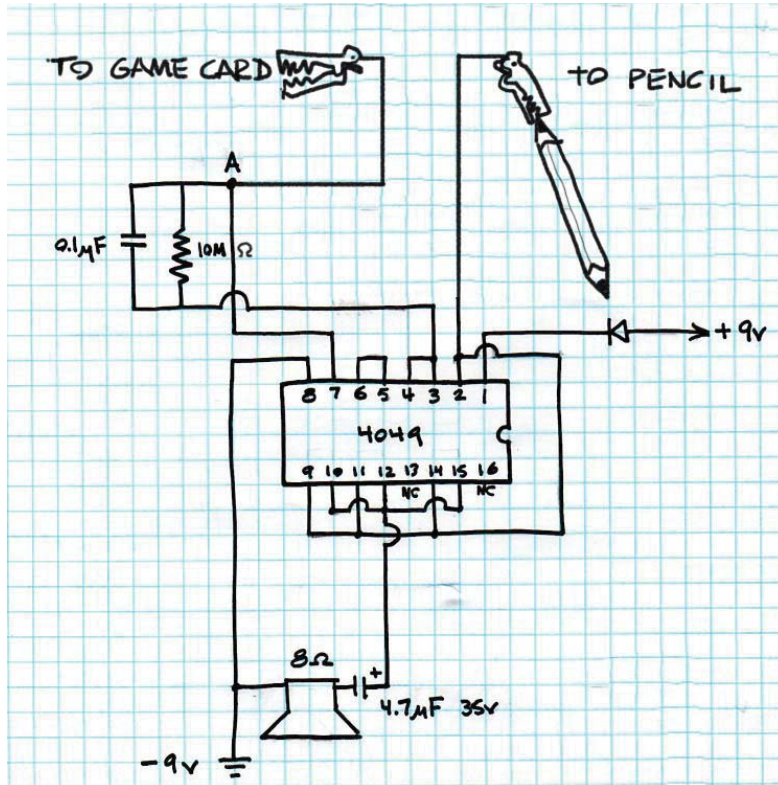 TO GAME CARD
TO PENCIL
A
0.1μF
10M Ω
+9v
8 7 6 5 4 3 2 1
4049
9 10 11 12 13 14 15 16
NC NC
8Ω
+
4.7μF 35v
-9v